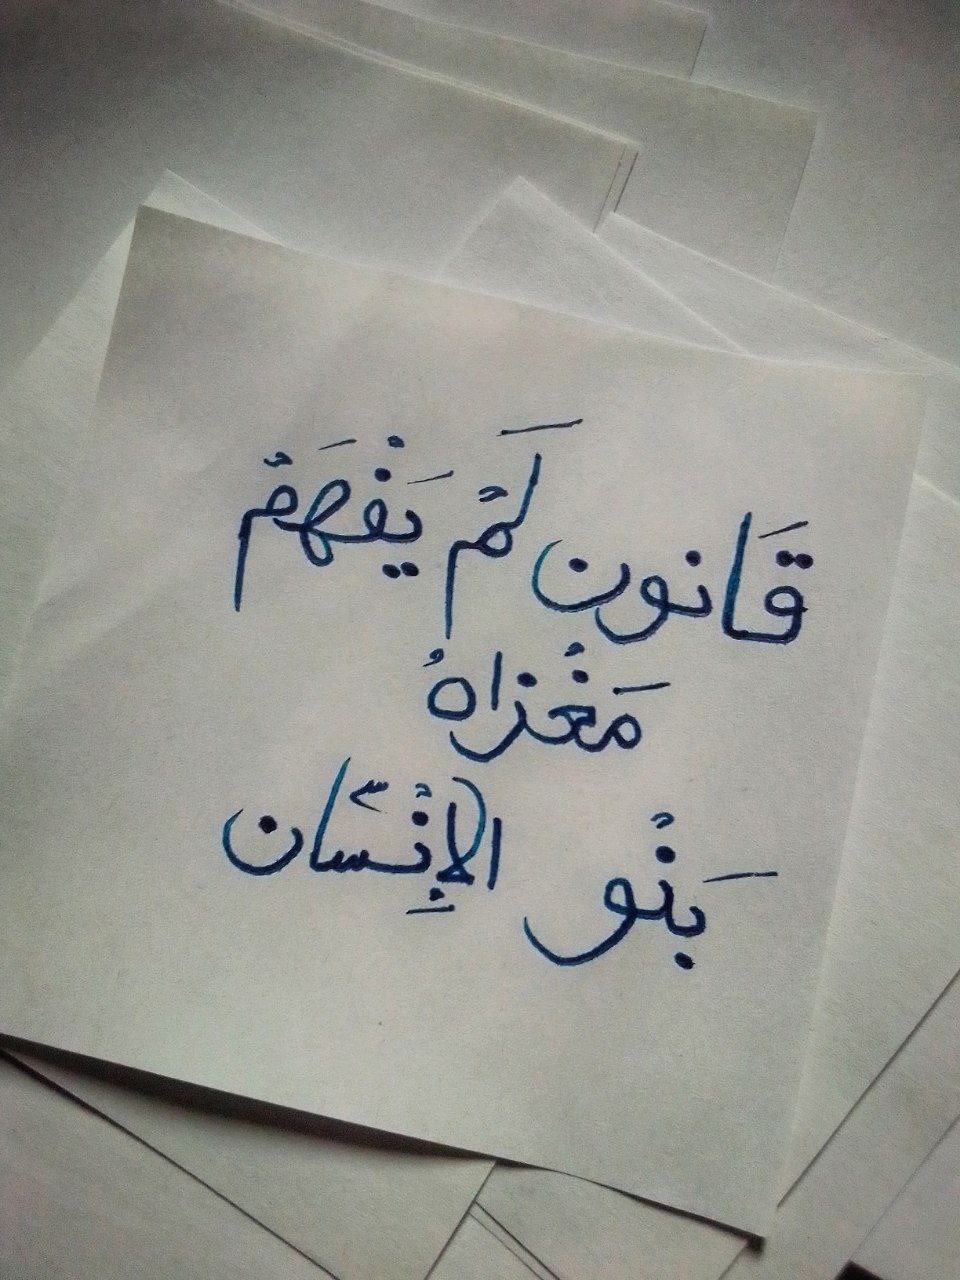 قَانون لَمْ يَفْهَمْ
مَغْزَاهُ
بَنْو الإِنْسَان